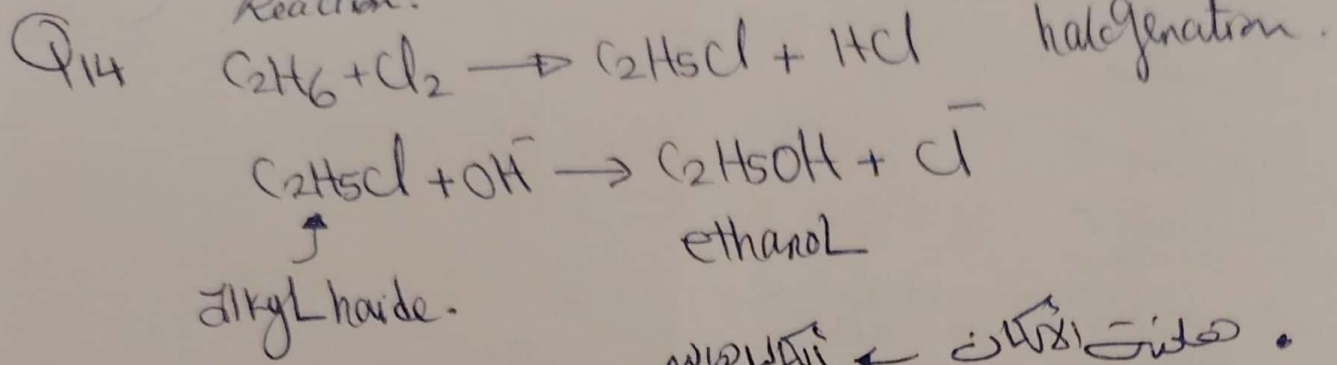 Reaction.
Q14 C2H6 + Cl2 → C2H5Cl + HCl halogenation.
C2H5Cl + OH⁻ → C2H5OH + Cl⁻
↑ ethanol
alkyl haide.